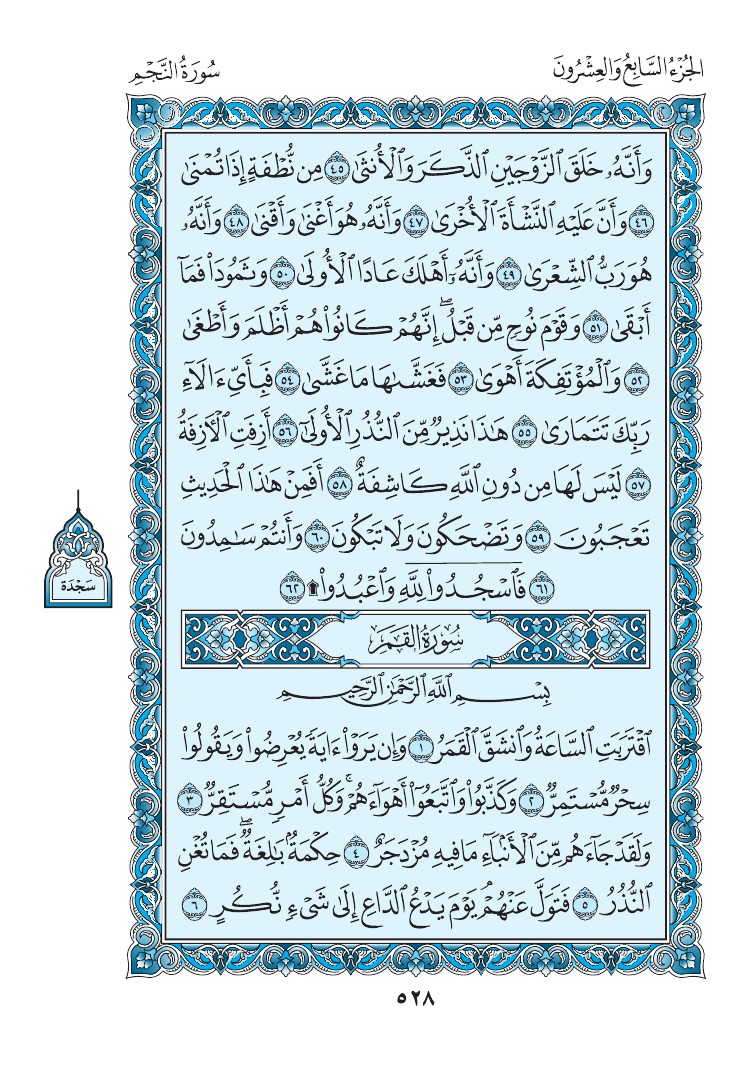 الجُزْءُ السَّابِعُ وَالعِشْرُونَ
سُورَةُ النَّجْمِ
وَأَنَّهُۥ خَلَقَ ٱلزَّوْجَيْنِ ٱلذَّكَرَ وَٱلْأُنثَىٰ ٤٥ مِن نُّطْفَةٍ إِذَا تُمْنَىٰ
٤٦ وَأَنَّ عَلَيْهِ ٱلنَّشْأَةَ ٱلْأُخْرَىٰ ٤٧ وَأَنَّهُۥ هُوَ أَغْنَىٰ وَأَقْنَىٰ ٤٨ وَأَنَّهُۥ
هُوَ رَبُّ ٱلشِّعْرَىٰ ٤٩ وَأَنَّهُۥٓ أَهْلَكَ عَادًا ٱلْأُولَىٰ ٥٠ وَثَمُودَا۟ فَمَآ
أَبْقَىٰ ٥١ وَقَوْمَ نُوحٍ مِّن قَبْلُ ۖ إِنَّهُمْ كَانُوا۟ هُمْ أَظْلَمَ وَأَطْغَىٰ
٥٢ وَٱلْمُؤْتَفِكَةَ أَهْوَىٰ ٥٣ فَغَشَّىٰهَا مَا غَشَّىٰ ٥٤ فَبِأَىِّ ءَالَآءِ
رَبِّكَ تَتَمَارَىٰ ٥٥ هَـٰذَا نَذِيرٌ مِّنَ ٱلنُّذُرِ ٱلْأُولَىٰٓ ٥٦ أَزِفَتِ ٱلْءَازِفَةُ
٥٧ لَيْسَ لَهَا مِن دُونِ ٱللَّهِ كَاشِفَةٌ ٥٨ أَفَمِنْ هَـٰذَا ٱلْحَدِيثِ
تَعْجَبُونَ ٥٩ وَتَضْحَكُونَ وَلَا تَبْكُونَ ٦٠ وَأَنتُمْ سَـٰمِدُونَ
٦١ فَٱسْجُدُوا۟ لِلَّهِ وَٱعْبُدُوا۟ ۩ ٦٢
سَجْدَة
سُورَةُ القَمَرِ
بِسْمِ ٱللَّهِ ٱلرَّحْمَـٰنِ ٱلرَّحِيمِ
ٱقْتَرَبَتِ ٱلسَّاعَةُ وَٱنشَقَّ ٱلْقَمَرُ ١ وَإِن يَرَوْا۟ ءَايَةً يُعْرِضُوا۟ وَيَقُولُوا۟
سِحْرٌ مُّسْتَمِرٌّ ٢ وَكَذَّبُوا۟ وَٱتَّبَعُوٓا۟ أَهْوَآءَهُمْ ۚ وَكُلُّ أَمْرٍ مُّسْتَقِرٌّ ٣
وَلَقَدْ جَآءَهُم مِّنَ ٱلْأَنۢبَآءِ مَا فِيهِ مُزْدَجَرٌ ٤ حِكْمَةٌۢ بَـٰلِغَةٌ ۖ فَمَا تُغْنِ
ٱلنُّذُرُ ٥ فَتَوَلَّ عَنْهُمْ ۘ يَوْمَ يَدْعُ ٱلدَّاعِ إِلَىٰ شَىْءٍ نُّكُرٍ ٦
٥٢٨